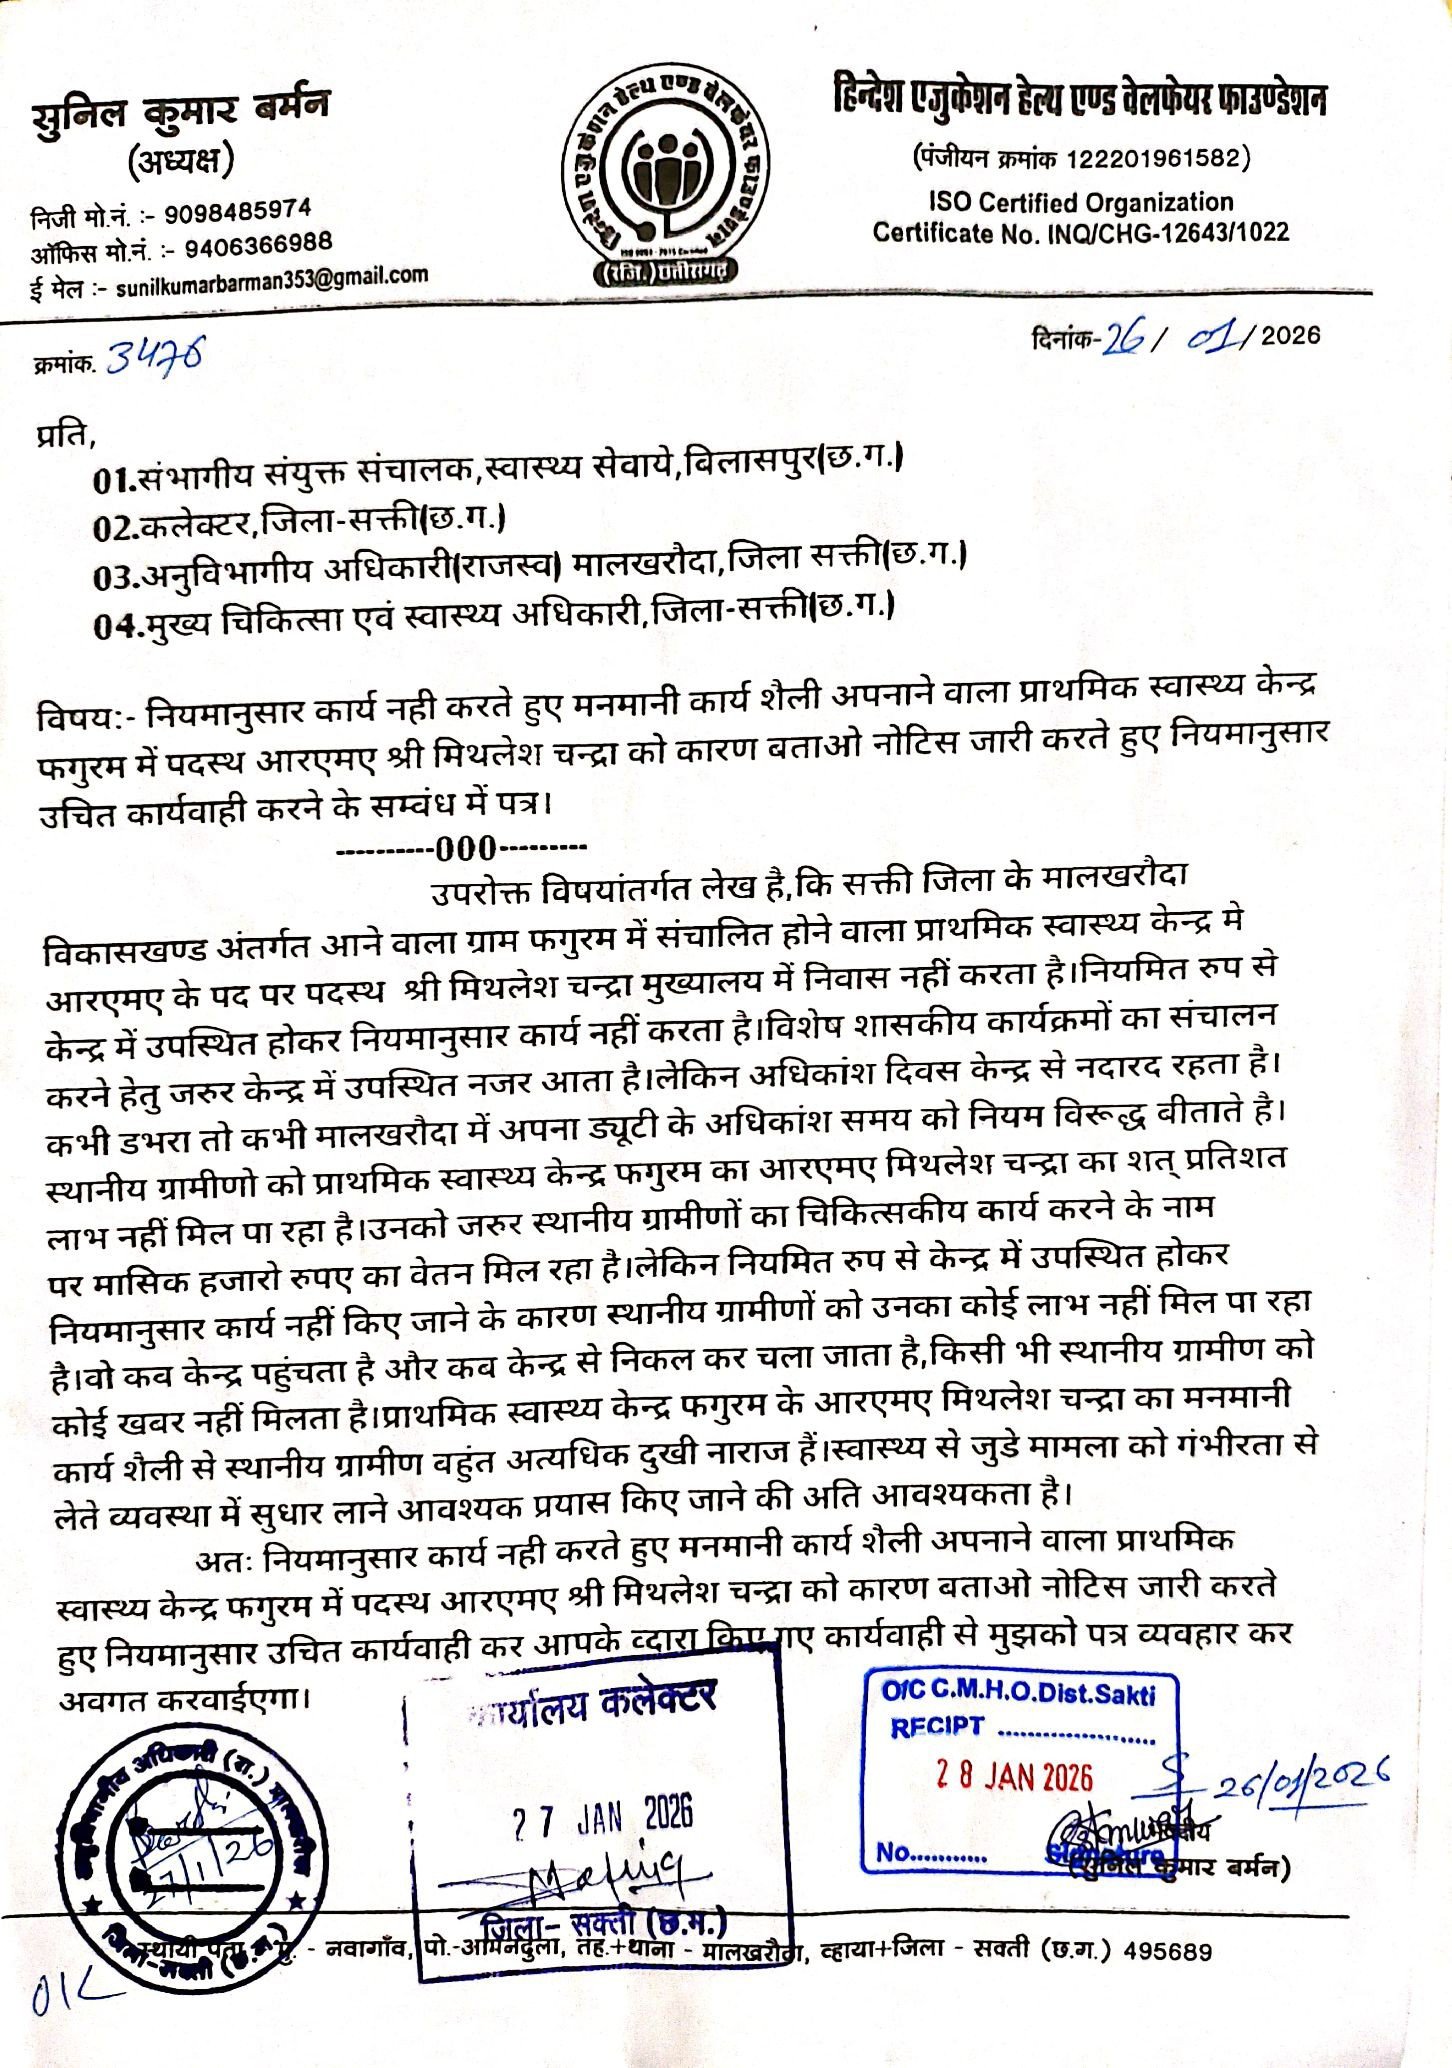 सुनिल कुमार बर्मन
(अध्यक्ष)
निजी मो.नं. :- 9098485974
ऑफिस मो.नं. :- 9406366988
ई मेल :- sunilkumarbarman353@gmail.com
हिन्देश एजुकेशन हेल्थ एण्ड वेलफेयर फाउण्डेशन
(रजि.) छत्तीसगढ़
हिन्देश एजुकेशन हेल्थ एण्ड वेलफेयर फाउण्डेशन
(पंजीयन क्रमांक 122201961582)
ISO Certified Organization
Certificate No. INQ/CHG-12643/1022
क्रमांक. 3476
दिनांक-26/ 01/2026
प्रति,
01.संभागीय संयुक्त संचालक,स्वास्थ्य सेवाये,विलासपुर(छ.ग.)
02.कलेक्टर,जिला-सक्ती(छ.ग.)
03.अनुविभागीय अधिकारी(राजस्व) मालखरौदा,जिला सक्ती(छ.ग.)
04.मुख्य चिकित्सा एवं स्वास्थ्य अधिकारी,जिला-सक्ती(छ.ग.)
विषय:- नियमानुसार कार्य नही करते हुए मनमानी कार्य शैली अपनाने वाला प्राथमिक स्वास्थ्य केन्द्र
फगुरम में पदस्थ आरएमए श्री मिथलेश चन्द्रा को कारण बताओ नोटिस जारी करते हुए नियमानुसार
उचित कार्यवाही करने के सम्वंध में पत्र।
----------000---------
उपरोक्त विषयांतर्गत लेख है,कि सक्ती जिला के मालखरौदा
विकासखण्ड अंतर्गत आने वाला ग्राम फगुरम में संचालित होने वाला प्राथमिक स्वास्थ्य केन्द्र मे
आरएमए के पद पर पदस्थ श्री मिथलेश चन्द्रा मुख्यालय में निवास नहीं करता है।नियमित रुप से
केन्द्र में उपस्थित होकर नियमानुसार कार्य नहीं करता है।विशेष शासकीय कार्यक्रमों का संचालन
करने हेतु जरुर केन्द्र में उपस्थित नजर आता है।लेकिन अधिकांश दिवस केन्द्र से नदारद रहता है।
कभी डभरा तो कभी मालखरौदा में अपना ड्यूटी के अधिकांश समय को नियम विरूद्ध वीताते है।
स्थानीय ग्रामीणो को प्राथमिक स्वास्थ्य केन्द्र फगुरम का आरएमए मिथलेश चन्द्रा का शत् प्रतिशत
लाभ नहीं मिल पा रहा है।उनको जरुर स्थानीय ग्रामीणों का चिकित्सकीय कार्य करने के नाम
पर मासिक हजारो रुपए का वेतन मिल रहा है।लेकिन नियमित रुप से केन्द्र में उपस्थित होकर
नियमानुसार कार्य नहीं किए जाने के कारण स्थानीय ग्रामीणों को उनका कोई लाभ नहीं मिल पा रहा
है।वो कव केन्द्र पहुंचता है और कव केन्द्र से निकल कर चला जाता है,किसी भी स्थानीय ग्रामीण को
कोई खवर नहीं मिलता है।प्राथमिक स्वास्थ्य केन्द्र फगुरम के आरएमए मिथलेश चन्द्रा का मनमानी
कार्य शैली से स्थानीय ग्रामीण वहुंत अत्यधिक दुखी नाराज हैं।स्वास्थ्य से जुडे मामला को गंभीरता से
लेते व्यवस्था में सुधार लाने आवश्यक प्रयास किए जाने की अति आवश्यकता है।
अतः नियमानुसार कार्य नही करते हुए मनमानी कार्य शैली अपनाने वाला प्राथमिक
स्वास्थ्य केन्द्र फगुरम में पदस्थ आरएमए श्री मिथलेश चन्द्रा को कारण बताओ नोटिस जारी करते
हुए नियमानुसार उचित कार्यवाही कर आपके व्दारा किए गए कार्यवाही से मुझको पत्र व्यवहार कर
अवगत करवाईएगा।
अनुविभागीय अधिकारी (रा.) मालखरौदा
जिला-सक्ती (छ.ग.)
27/1/26
कार्यालय कलेक्टर
27 JAN 2026
जिला- सक्ती (छ.ग.)
O/C C.M.H.O.Dist.Sakti
RECIPT ......................
28 JAN 2026
No...........
Signature
26/01/2026
(सुनिल कुमार बर्मन)
स्थायी पता - मु. - नवागाँव, पो.-आमनदुला, तह.+थाना - मालखरौदा, व्हाया+जिला - सक्ती (छ.ग.) 495689